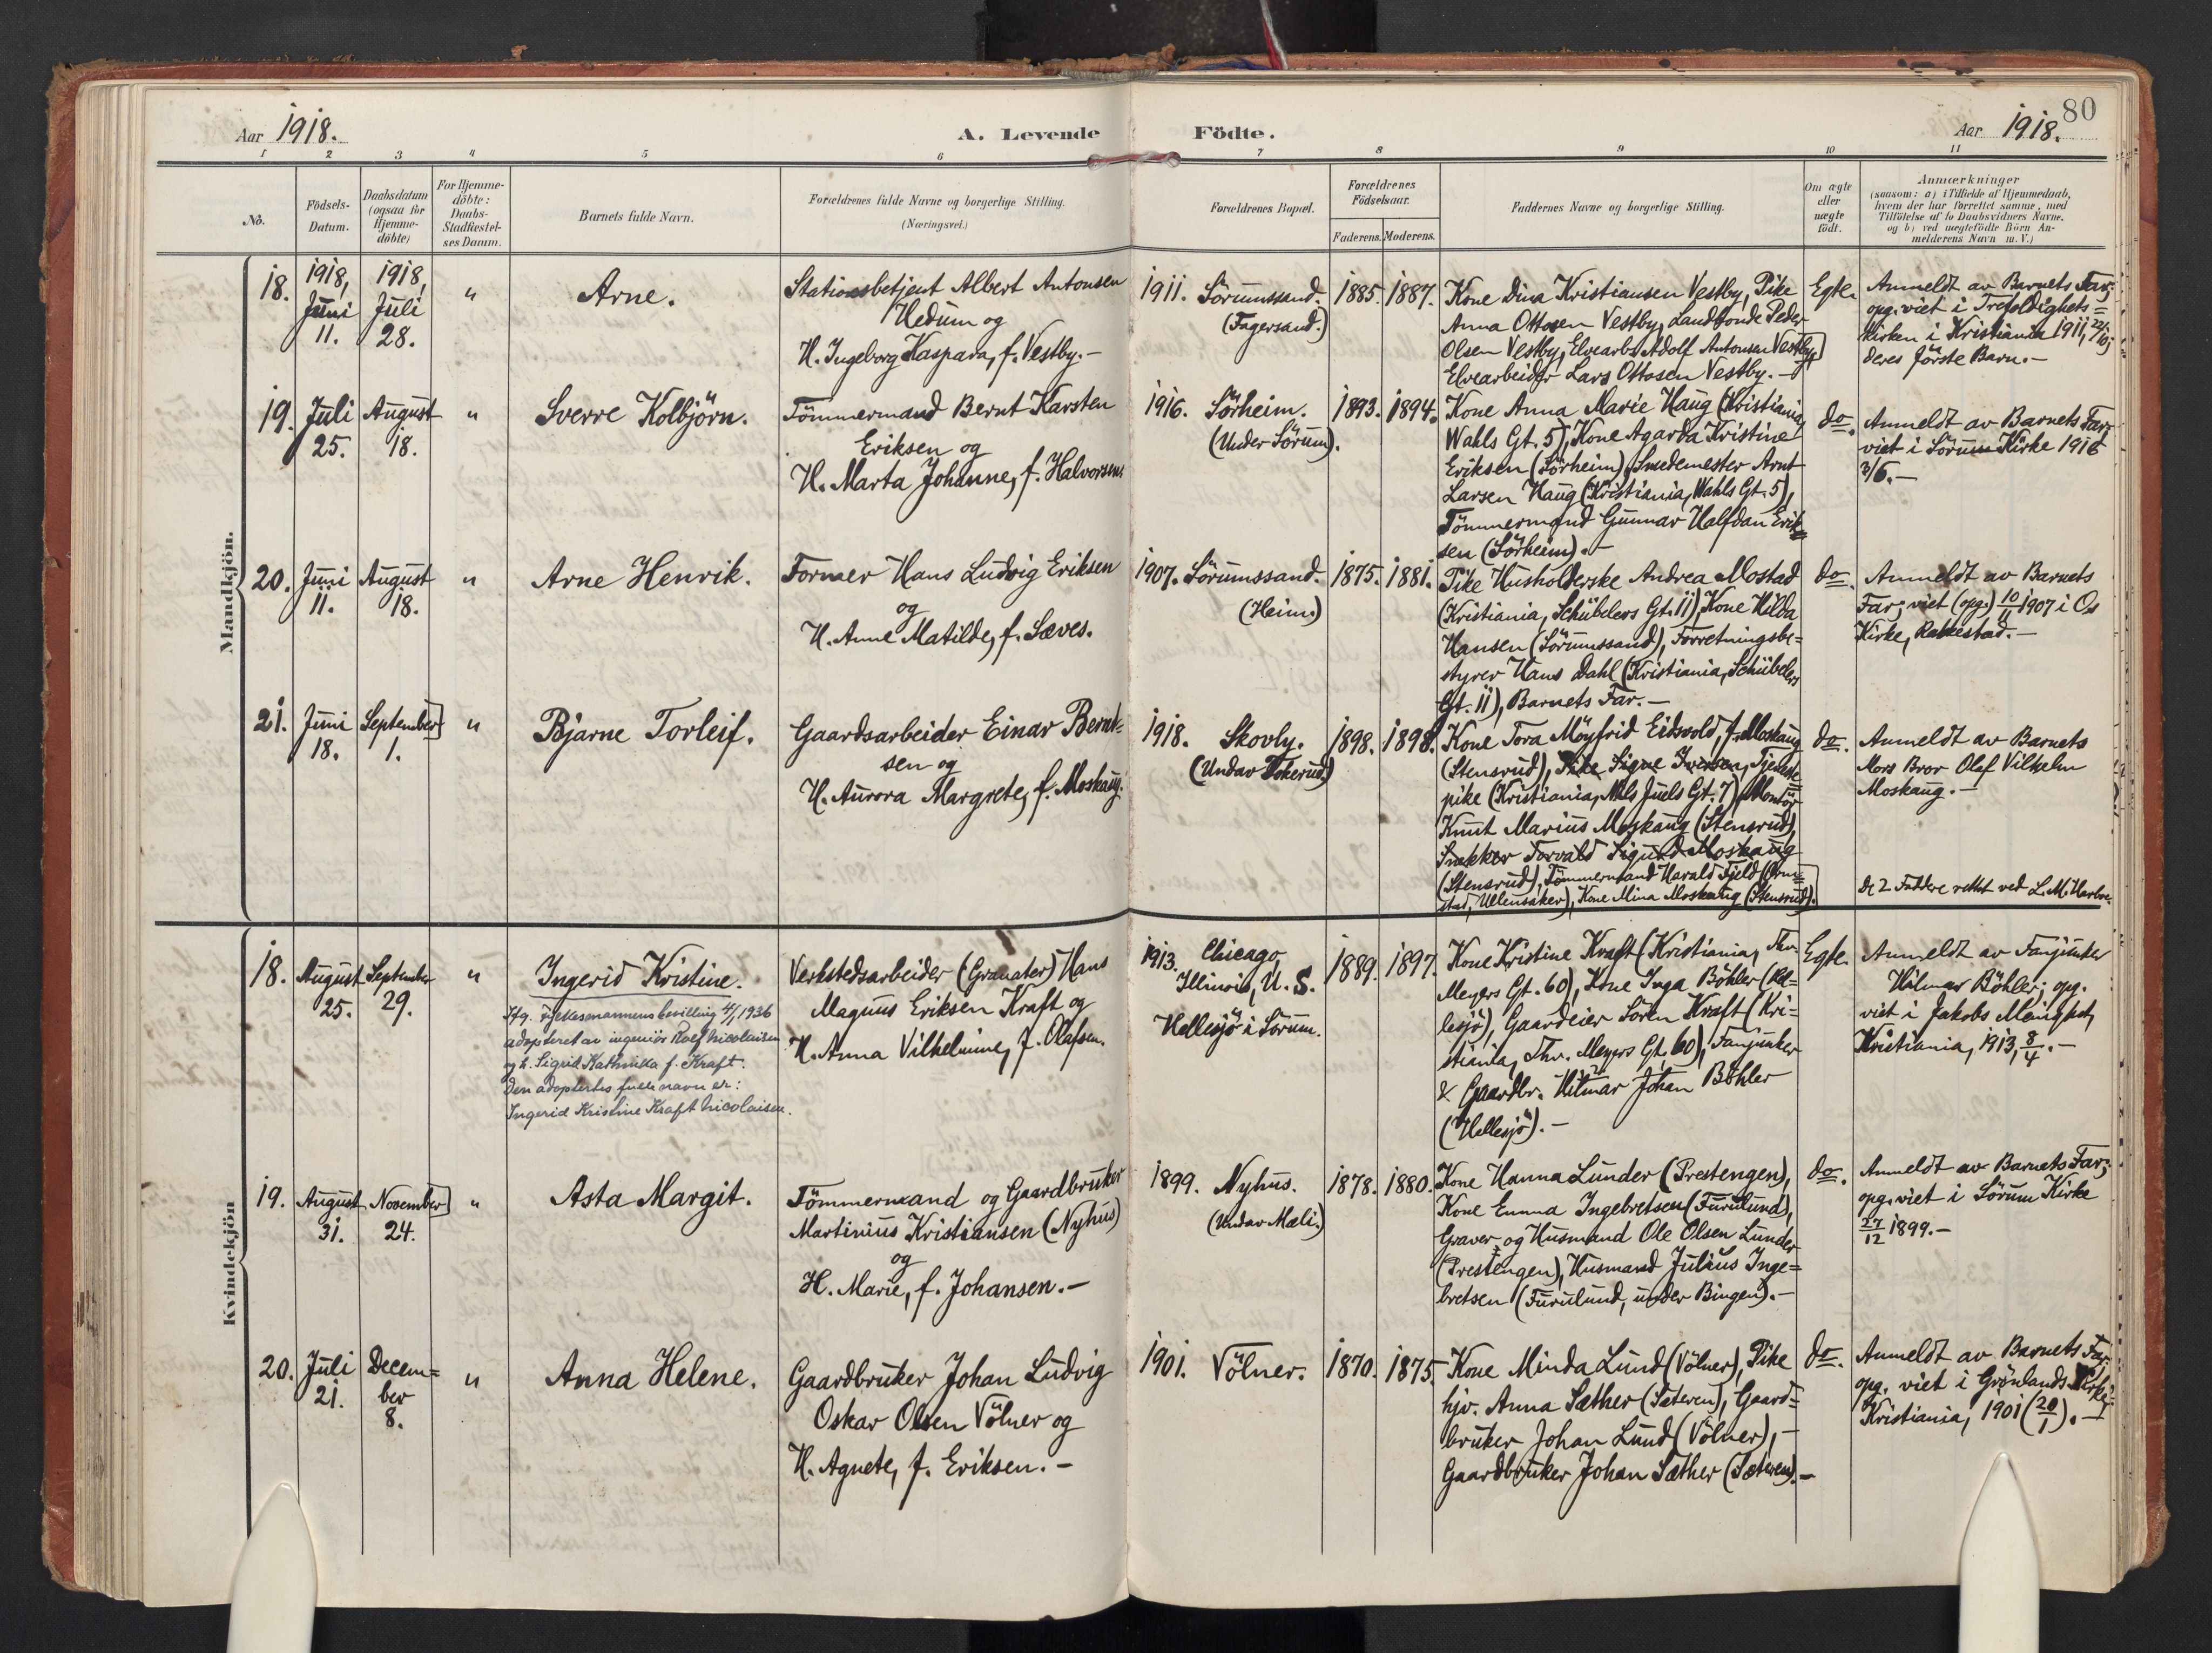 Aar 1918. A. Levende Födte. Aar 1918. 80
1 2 3 4 5 6 7 8 9 10 11
No.
Födsels-
Datum.
Daabsdatum
(ogsaa for
Hjemme-
döbte)
For Hjemme-
döbte:
Daabs-
Stadfæstel-
ses Datum.
Barnets fulde Navn.
Forældrenes fulde Navne og borgerlige Stilling.
(Næringsvei.)
Forældrenes Bopæl.
Forældrenes
Födselsaar.
Faderens. Moderens.
Faddernes Navne og borgerlige Stilling.
Om ægte
eller
uægte
födt.
Anmærkninger
(saasom: a) i Tilfælde af Hjemmedaab,
hvem der har forrettet samme, med
Tilföielse af to Daabsvidners Navne.
og b) ved uægtefödte Börn An-
melderens Navn m. V.)
Mandkjön.
18.
1918,
Juni
11.
1918,
Juli
28.
"
Arne.
Stationsbetjent Albert Antonsen
Hedum og
H. Ingeborg Kaspara, f. Vestby.-
1911. Sörumssand.
(Fagersand.)
1885. 1887.
Kone Dina Kristiansen Vestby, Pike
Anna Ottosen Vestby, Landbonde Peder
Olsen Vestby, Elvearb. Adolf Antonsen Vestby,
Elvearbeider Lars Ottosen Vestby.-
Egte.
Anmeldt av Barnets Far;
opg. viet i Trefoldigheds=
kirken i Kristiania 1911, 22/10;
deres förste Barn.-
19.
Juli
25.
August
18.
"
Sverre Kolbjörn.
Tömmermand Bernt Karsten
Eriksen og
H. Marta Johanne, f. Halvorsen.
1916. Sörheim.
(Under Sörum).
1893. 1894.
Kone Anna Marie Haug (Kristiania,
Wahls Gt. 5), Kone Agarda Kristine
Eriksen (Sörheim), Smedemester Arnt
Larsen Haug (Kristiania, Wahls Gt. 5),
Tömmermand Gunnar Halfdan Erik=
sen (Sörheim).-
do.
Anmeldt av Barnets Far;
viet i Sörum Kirke 1916
3/6.-
20.
Juni
11.
August
18.
"
Arne Henrik.
Former Hans Ludvig Eriksen
og
H. Anne Matilde, f. Sæves.
1907. Sörumssand.
(Heim.)
1875. 1881.
Pike Husholderske Andrea Mostad
(Kristiania, Schübelers Gt. 11), Kone Hilda
Hansen (Sörumssand), Forretningsbe=
styrer Hans Dahl (Kristiania, Schübelers
Gt. 11), Barnets Far.-
do.
Anmeldt av Barnets
Far; viet (opg.) 10/11 1907 i Os
Kirke, Rakkestad.-
21.
Juni
18.
September
1.
"
Bjarne Torleif.
Gaardsarbeider Einar Bernt=
sen og
H. Aurora Margrete, f. Moskaug.
1918. Skovly.
(Under Tokerud.)
1898. 1898.
Kone Tora Möyfrid Eidsvold, f. Moskaug
(Stensrud), Pike Signe Iversen, Tjeneste
pike (Kristiania, Nils Juels Gt. 7), Montör
Knut Marius Moskaug (Stensrud),
Snekker Torvald Sigurd Moskaug
(Stensrud), Tömmermand Harald Fjeld (Orm=
stad, Ullensaker), Kone Mina Moskaug (Stensrud).
do.
Anmeldt av Barnets
Mors Bror Olaf Vilhelm
Moskaug.-
de 2 Faddere rettet ved L. M.
Kvindekjön
18.
August
25.
September
29.
"
Ingerid Kristine.
Ifg. fylkesmannens bevilling 4/1 1936
adopteret av ingeniör Rolf Nicolaisen
og h. Sigrid Kathinka f. Kraft.
Den adoptertes fulle navn er:
Ingerid Kristine Kraft Nicolaisen.
Verkstedsarbeider (Granater) Hans
Magnus Eriksen Kraft og
H. Anna Vilhelmine, f. Olafsen.
1913. Chicago,
Illinois, U. S.
Hellesjö i Sörum.
1889. 1897.
Kone Kristine Kraft (Kristiania, Thv.
Meyers Gt. 60), Kone Inga Böhler (Hel=
lesjö), Gaardeier Sören Kraft (Kri=
stiania, Thv. Meyers Gt. 60), Fanjunker
& Gaardbr. Hilmar Johan Böhler
(Hellesjö).-
Egte.
Anmeldt av Fanjunker
Hilmar Böhler; opg.
viet i Jakobs Menighet,
Kristiania, 1913, 8/4.-
19.
August
31.
November
24.
"
Asta Margit.
Tömmermand og Gaardbruker
Martinius Kristiansen (Nyhus)
og
H. Marie, f. Johansen.-
1899. Nyhus.
(Under Mæli.)
1878. 1880.
Kone Hanna Lunder (Prestengen),
Kone Emma Ingebretsen (Furulund),
Graver og Husmand Ole Olsen Lunder
(Prestengen), Husmand Julius Inge=
bretsen (Furulund, under Bingen).-
do.
Anmeldt av Barnets Far;
opg. viet i Sörum Kirke
27/12 1899.-
20.
Juli
21.
Decem=
ber
8.
"
Anna Helene.
Gaardbruker Johan Ludvig
Oskar Olsen Völner og
H. Agnete, f. Eriksen.-
1901. Völner.
1870. 1875.
Kone Minda Lund (Völner), Pike
hjv. Anna Sæther (Sæteren), Gaard=
bruker Johan Lund (Völner),-
Gaardbruker Johan Sæther (Sæteren).-
do.
Anmeldt av Barnets Far;
opg. viet i Grönlands Kirke,
Kristiania, 1901 (20/1).-